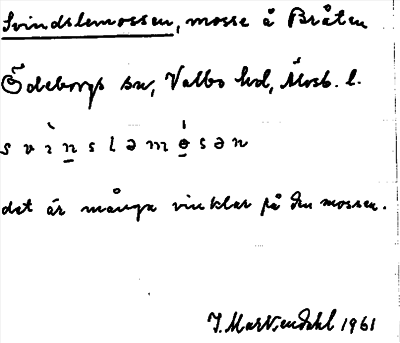 Svindslemossen, mosse å Bråten
Ödeborgs sn, Valbo hd, Älvsb. l.
svìn̲sləmó̲sən
det är många vinklar på den mossen.
1961